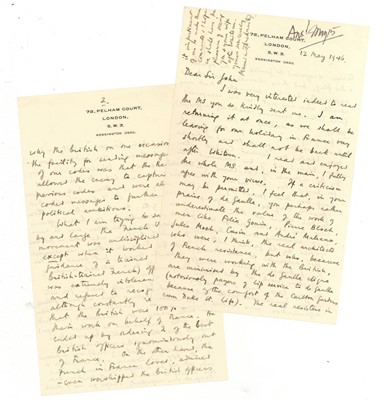 78, PELHAM COURT,
LONDON,
S.W.3.
KENSINGTON
12 May 1946.
Dear Sir John
I was very interested indeed to read
the MS you so kindly sent me. I am
returning it at once, as we shall be
leaving for our holiday in France very
shortly and shall not be back until
after Whitsun. I read and enjoyed
the whole MS and, in the main, I fully
agree with your views. If a criticism
may be permitted, I feel that, in your
praise of de Gaulle, you perhaps rather
underestimate the value of the work of
men like Felix Gouin, Pierre Bloch,
Jules Moch, Cassin and André
who, were, I think, the real architects
of French resistance, but who, because
they were working with the British,
are minimised by the de Gaulle clique
(notoriously payers of lip service to de Gaulle
because of the comfort of the Carlton Gardens
The real resisters in
2.
78, PELHAM COURT,
LONDON,
S.W.3.
KENSINGTON
why the British on one occasion
the facility for sending messages
of own codes was that the
allowed the enemy to capture
previous codes and were
coded messages to further
political ambitions.
What I am trying to
by and large the French
movement was undisciplined
except when it worked
guidance of a trained
British-trained French) off
was extremely intolerant
and refused
although constantly
that the British were 100%
their work on behalf of France. He
ended up by ordering 2 of the best
British officers ignominiously out
of France. On the other hand, the
French in France loved, admired
- even worshipped the British officers